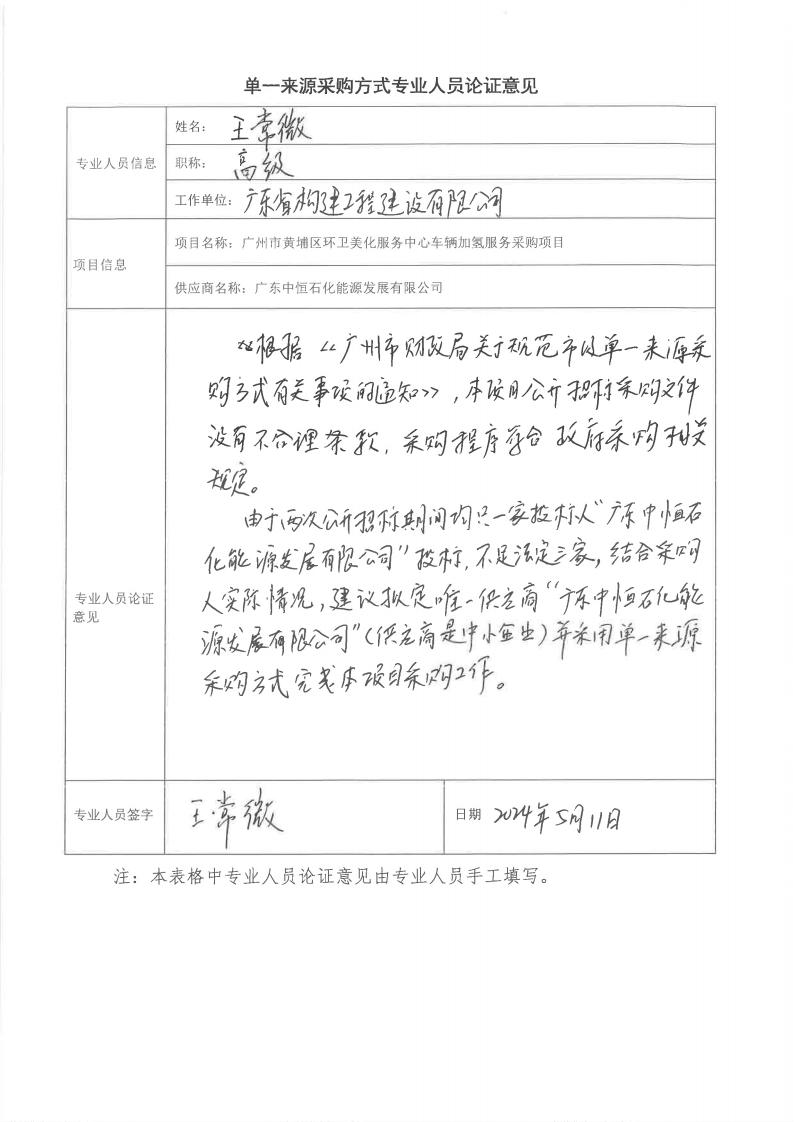 单一来源采购方式专业人员论证意见
专业人员信息
姓名：王常微
职称：高级
工作单位：广东省构建工程建设有限公司
项目信息
项目名称：广州市黄埔区环卫美化服务中心车辆加氢服务采购项目
供应商名称：广东中恒石化能源发展有限公司
专业人员论证
意见
根据《广州市财政局关于规范市级单一来源采
购方式有关事项的通知》，本项目公开招标采购文件
没有不合理条款，采购程序符合政府采购相关
规定。
由于两次公开招标期间均只一家投标人“广东中恒石
化能源发展有限公司”投标，不足法定三家，结合采购
人实际情况，建议拟定唯一供应商“广东中恒石化能
源发展有限公司”（供应商是中小企业）并采用单一来源
采购方式完成本项目采购工作。
专业人员签字
王常微
日期 2024年5月11日
注：本表格中专业人员论证意见由专业人员手工填写。